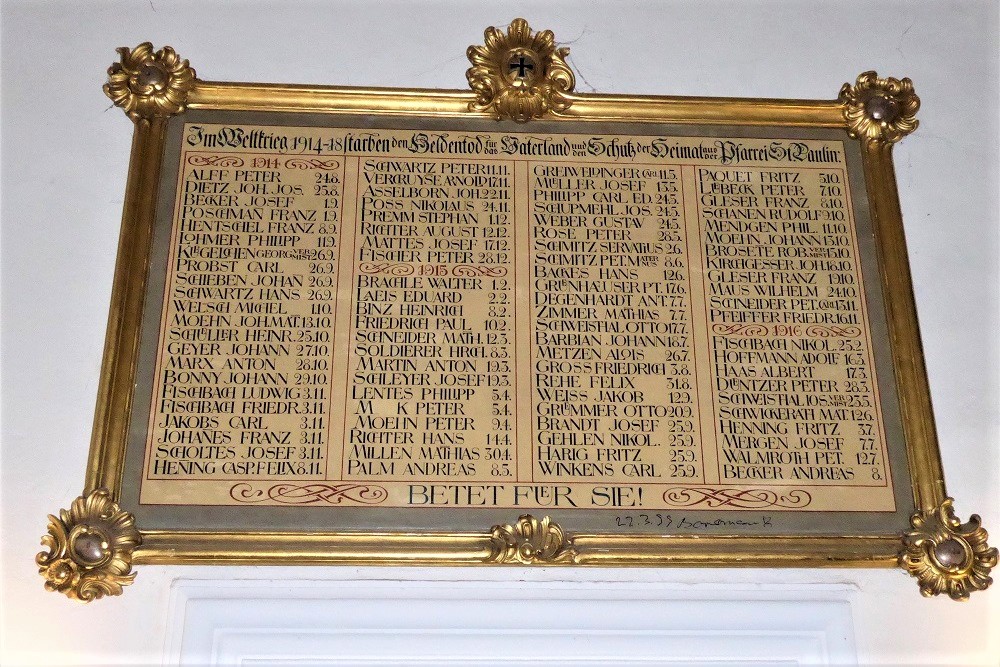 Im Weltkrieg 1914-18 starben den Heldentod für das Vaterland und den Schutz der Heimat aus der Pfarrei St Paulin:
1914
ALFF PETER 24.8.
DIETZ JOH. JOS. 25.8.
BECKER JOSEF 1.9.
POSCHMAN FRANZ 1.9.
HENTSCHEL FRANZ 8.9.
LOHMER PHILIPP 11.9.
KLÜGELCHEN GEORG VERMISST 26.9.
PROBST CARL 26.9.
SCHIEBEN JOHAN 26.9.
SCHWARTZ HANS 26.9.
WELSCH MICHEL 1.10.
MOEHN JOH. MAT. 13.10.
SCHÜLLER HEINR. 25.10.
GEYER JOHANN 27.10.
MARX ANTON 28.10.
BONNY JOHANN 29.10.
FISCHBACH LUDWIG 3.11.
FISCHBACH FRIEDR. 3.11.
JAKOBS CARL 3.11.
JOHANES FRANZ 3.11.
SCHOLTES JOSEF 3.11.
HENING CASP. FELIX 8.11.
SCHWARTZ PETER 11.11.
VERCRUYSE ARNOLD 17.11.
ASSELBORN JOH. 22.11.
POSS NIKOLAUS 24.11.
PREMM STEPHAN 1.12.
RICHTER AUGUST 12.12.
MATTES JOSEF 17.12.
FISCHER PETER 28.12.
1915
BRACHLE WALTER 1.2.
LAEIS EDUARD 2.2.
BINZ HEINRICH 8.2.
FRIEDRICH PAUL 10.2.
SCHNEIDER MATH. 12.3.
SOLDIERER HRCH. 8.3.
MARTIN ANTON 19.3.
SCHLEYER JOSEF 19.3.
LENTES PHILIPP 3.4.
M K PETER 5.4.
MOEHN PETER 9.4.
RICHTER HANS 14.4.
MILLEN MATHIAS 30.4.
PALM ANDREAS 8.5.
GREIWELDINGER CARL 11.5.
MÜLLER JOSEF 13.5.
PHILIPP CARL ED. 24.5.
SCHUPMEHL JOS. 24.5.
WEBER GUSTAV 24.5.
ROSE PETER 28.5.
SCHMITZ SERVATIUS 2.6.
SCHMITZ PET. MATERNUS 8.6.
BACKES HANS 12.6.
GRÜNHÄUSER PT. 17.6.
DEGENHARDT ANT. 7.7.
ZIMMER MATHIAS 7.7.
SCHWEISTHAL OTTO 17.7.
BARBIAN JOHANN 18.7.
METZEN ALOIS 26.7.
GROSS FRIEDRICH 3.8.
REHE FELIX 31.8.
WEISS JAKOB 12.9.
GRÜMMER OTTO 20.9.
BRANDT JOSEF 25.9.
GEHLEN NIKOL. 25.9.
HARIG FRITZ 25.9.
WINKENS CARL 25.9.
PAQUET FRITZ 5.10.
LÜBECK PETER 7.10.
GLESER FRANZ 8.10.
SCHANEN RUDOLF 9.10.
MENDGEN PHIL. 11.10.
MOEHN JOHANN 13.10.
BROSETE ROB. VERMISST 15.10.
KIRCHGESSER JOH. 18.10.
GLESER FRANZ 19.10.
MAUS WILHELM 24.10.
SCHNEIDER PET. CARL 13.11.
PFEIFFER FRIEDR. 16.11.
1916
FISCHBACH NIKOL. 23.2.
HOFFMANN ADOLF 16.3.
HAAS ALBERT 17.3.
DÜNTZER PETER 28.3.
SCHWEISTHAL JOS. VERMISST 23.5.
SCHWICKERATH MAT. 12.6.
HENNING FRITZ 3.7.
MERGEN JOSEF 7.7.
WALMROTH PET. 12.7.
BECKER ANDREAS 8.
BETET FUER SIE!
22.3.99